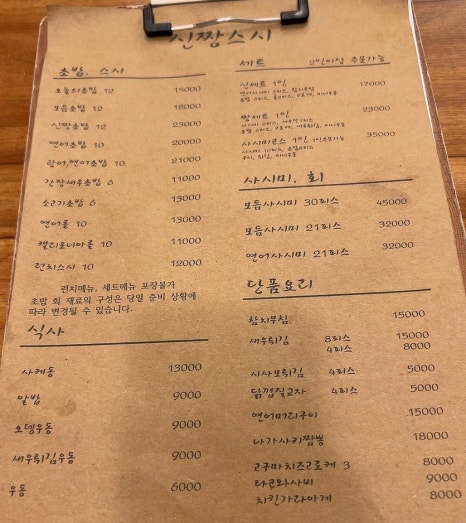 신짱스시
초밥, 스시
오늘의초밥 12 15000
모듬초밥 12 18000
신짱초밥 12 23000
연어초밥 10 20000
광어,연어초밥 10 21000
간장새우초밥 6 11000
소고기초밥 6 13000
연어롤 10 13000
캘리포니아롤 10 11000
런치스시 10 12000
런치메뉴, 세트메뉴 포장불가
초밥 회 재료의 구성은 당일 준비 상황에
따라 변경될 수 있습니다.
식사
사케동 13000
알밥 9000
오뎅우동 9000
새우튀김우동 9000
우동 6000
세트 2인이상 주문가능
신세트 1인 17000
짱세트 1인 23000
사시미코스 1인 35000
사시미, 회
모듬사시미 30피스 45000
모듬사시미 21피스 32000
연어사시미 21피스 32000
단품요리
참치무침 15000
새우튀김 8피스 15000
4피스 8000
시사모튀김 4피스 5000
닭껍질교자 4피스 5000
연어머리구이 15000
나가사키짬뽕 18000
고구마치즈고로케 3 8000
타코와사비 9000
치킨가라아게 8000